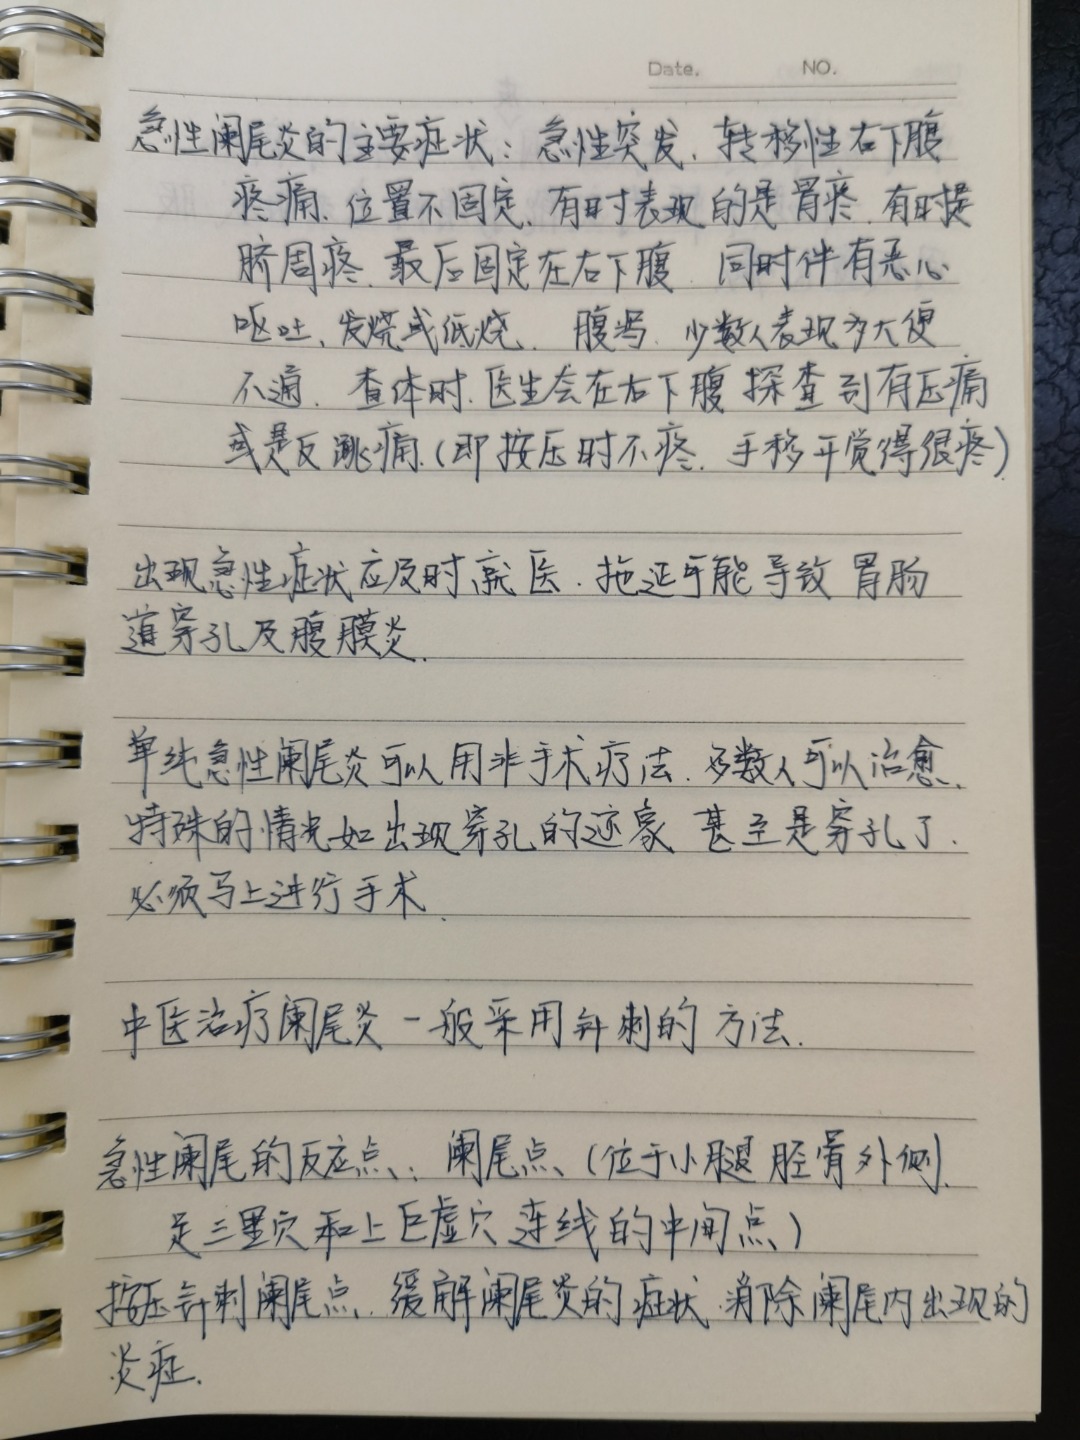 Date. NO.
急性阑尾炎的主要症状：急性突发，转移性右下腹
疼痛，位置不固定，有时表现的是胃疼，有时是
脐周疼，最后固定在右下腹，同时伴有恶心
呕吐、发烧或低烧，腹泻，少数人表现为大便
不通，查体时，医生会在右下腹探查到有压痛
或是反跳痛（即按压时不疼，手移开觉得很疼）
出现急性症状应及时就医，拖延可能导致胃肠
道穿孔及腹膜炎.
单纯急性阑尾炎可以用非手术疗法，多数人可以治愈，
特殊的情况如出现穿孔的迹象，甚至是穿孔了，
必须马上进行手术.
中医治疗阑尾炎一般采用针刺的方法.
急性阑尾的反应点：阑尾点（位于小腿胫骨外侧，
足三里穴和上巨虚穴连线的中间点）
按压针刺阑尾点，缓解阑尾炎的症状，消除阑尾内出现的
炎症.